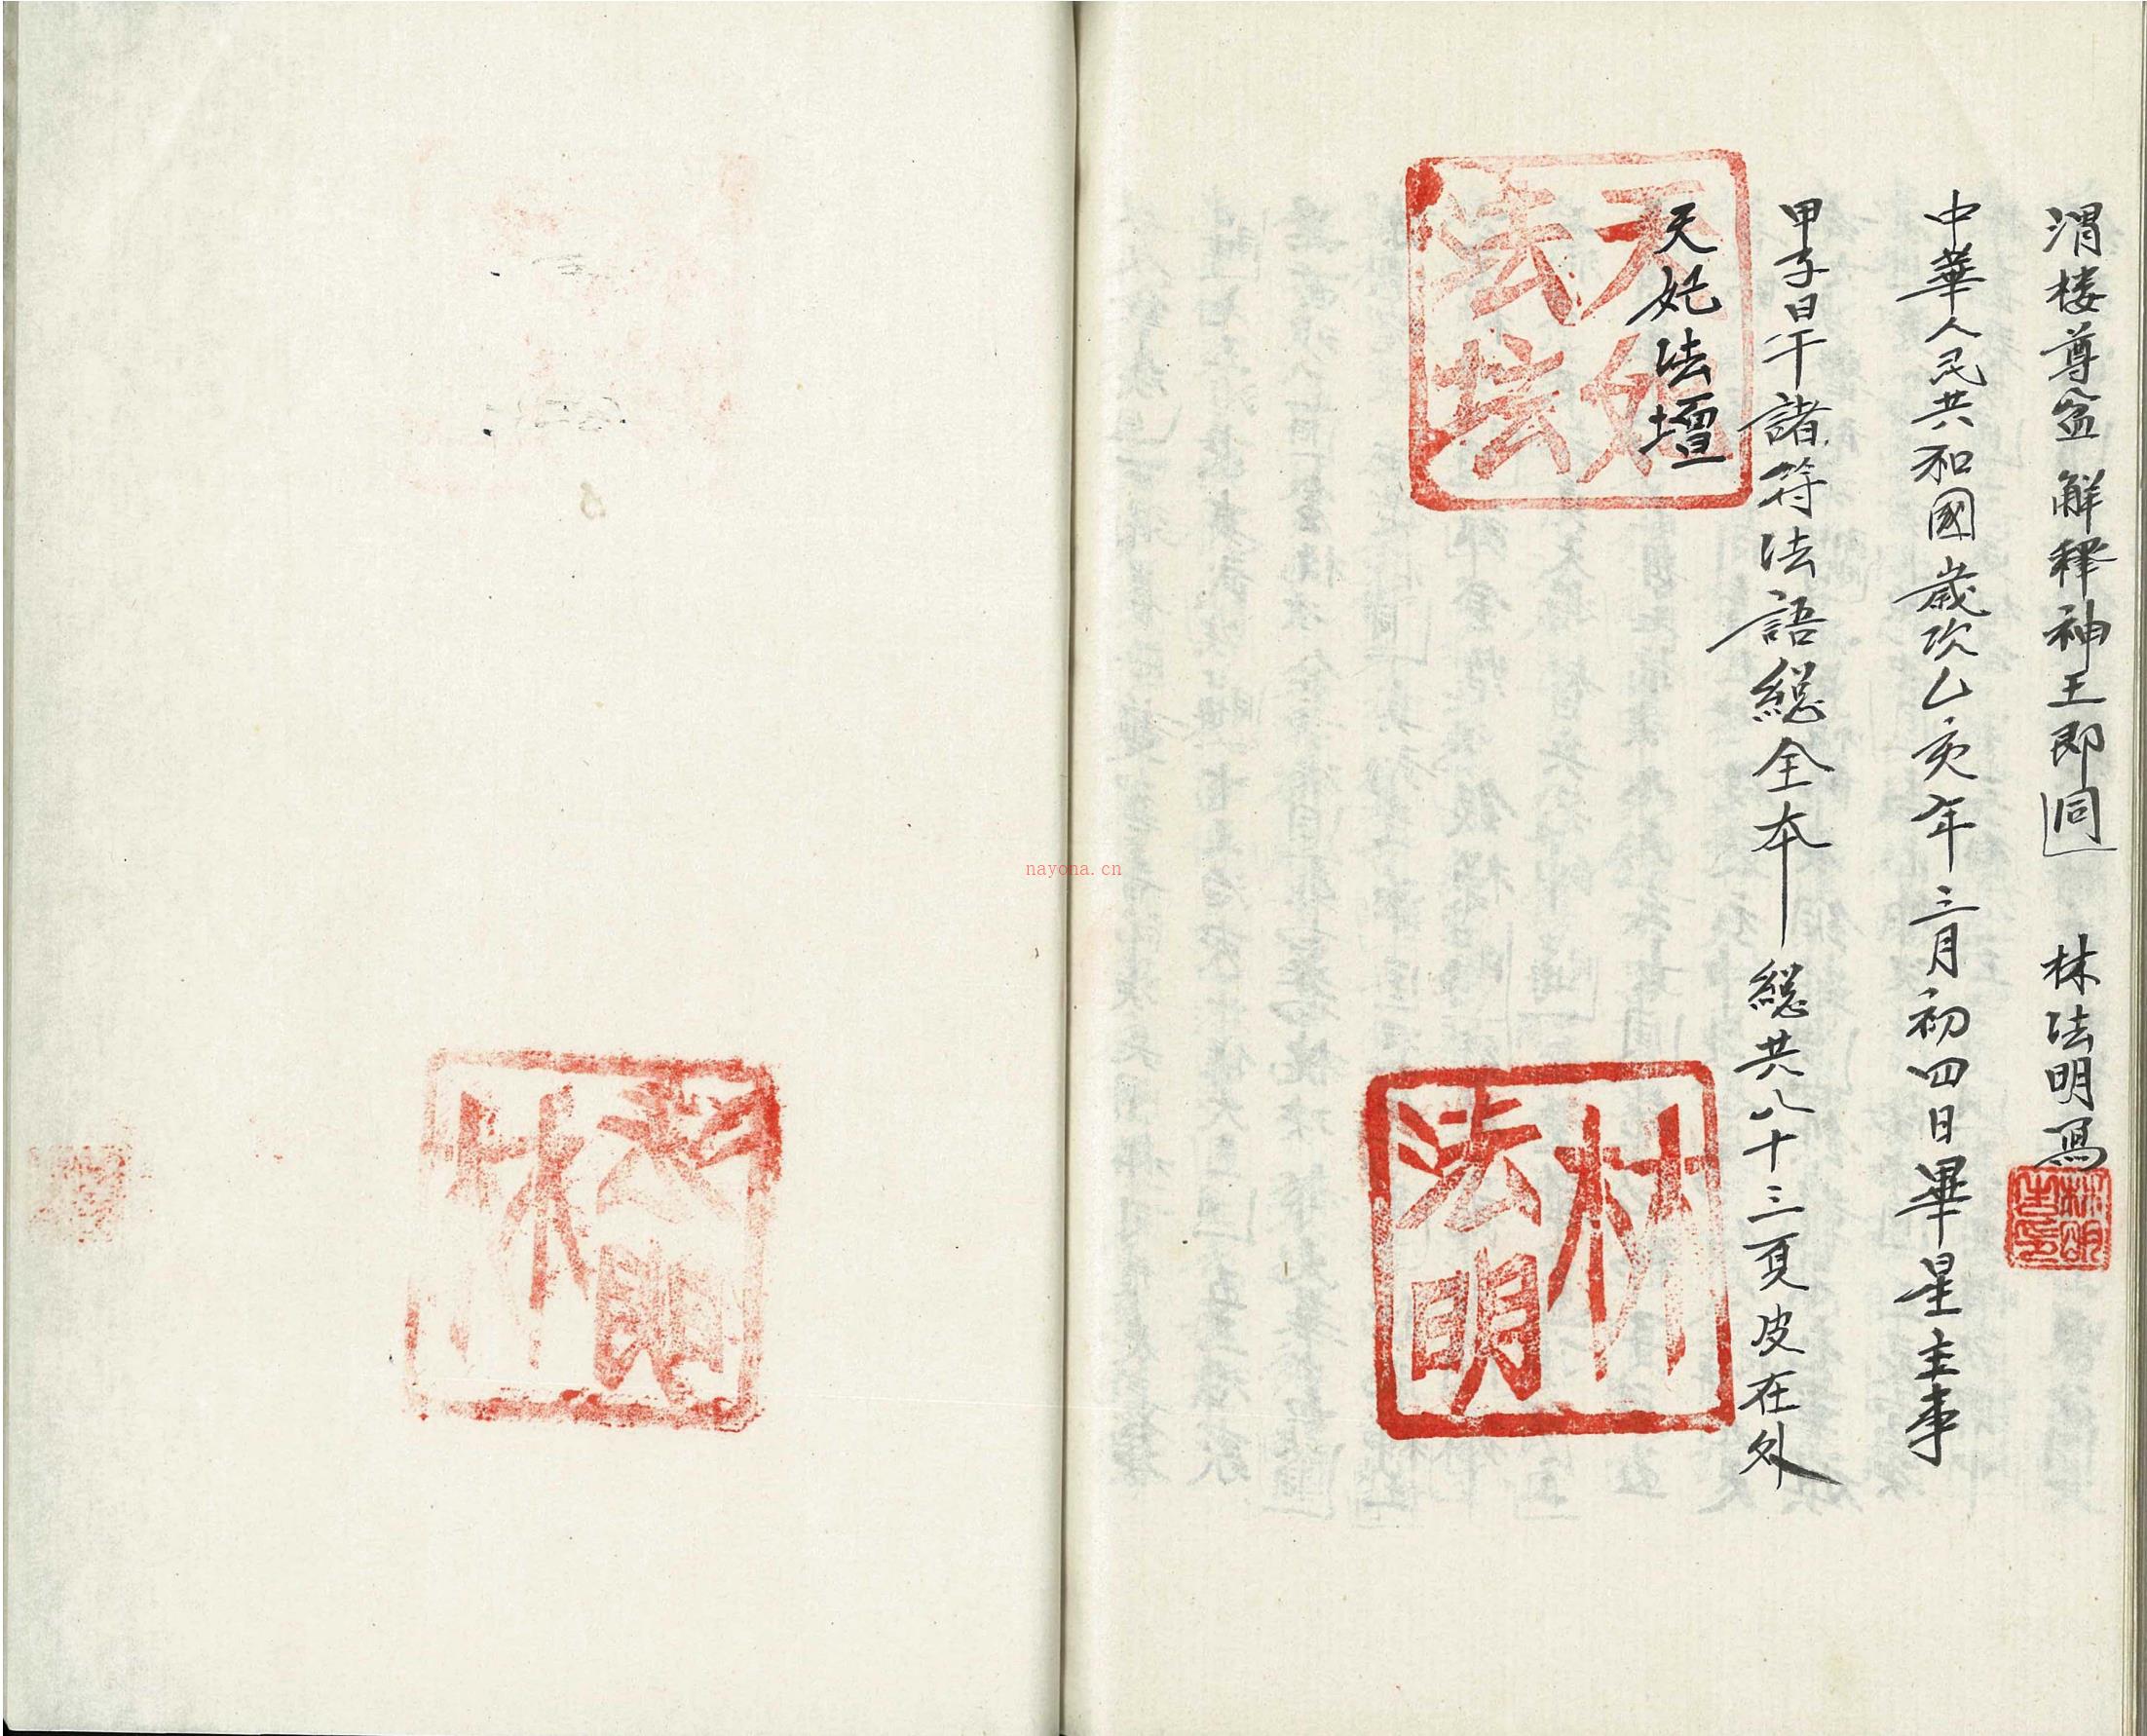 渭楼尊盆解释神王即同 林法明寫
中華人民共和國歲次乙亥年三月初四日畢星主事
甲子日干諸符法語總全本 總共八十三頁皮在外
天妃法壇
天妃法坛
林法明
nayona.cn